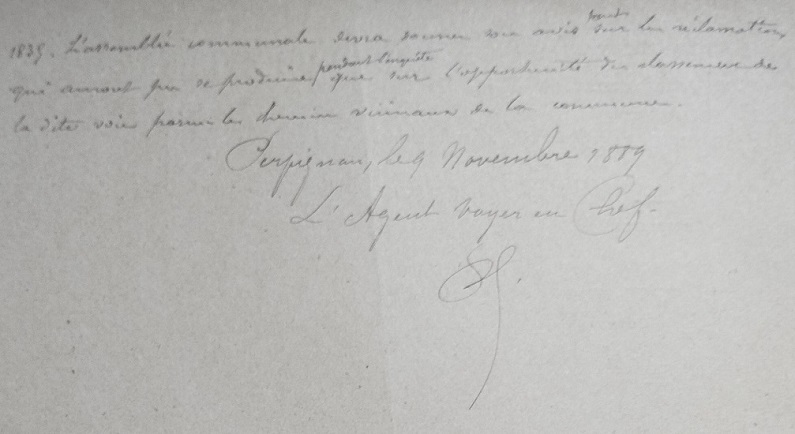 1835. L'assemblée communale devra donner son avis tant sur les réclamations
qui auront pu se produire pendant l'enquête que sur l'opportunité du classement de
la dite voie parmi les chemins vicinaux de la commune.
Perpignan, le 9 Novembre 1889
L'Agent Voyer en Chef.